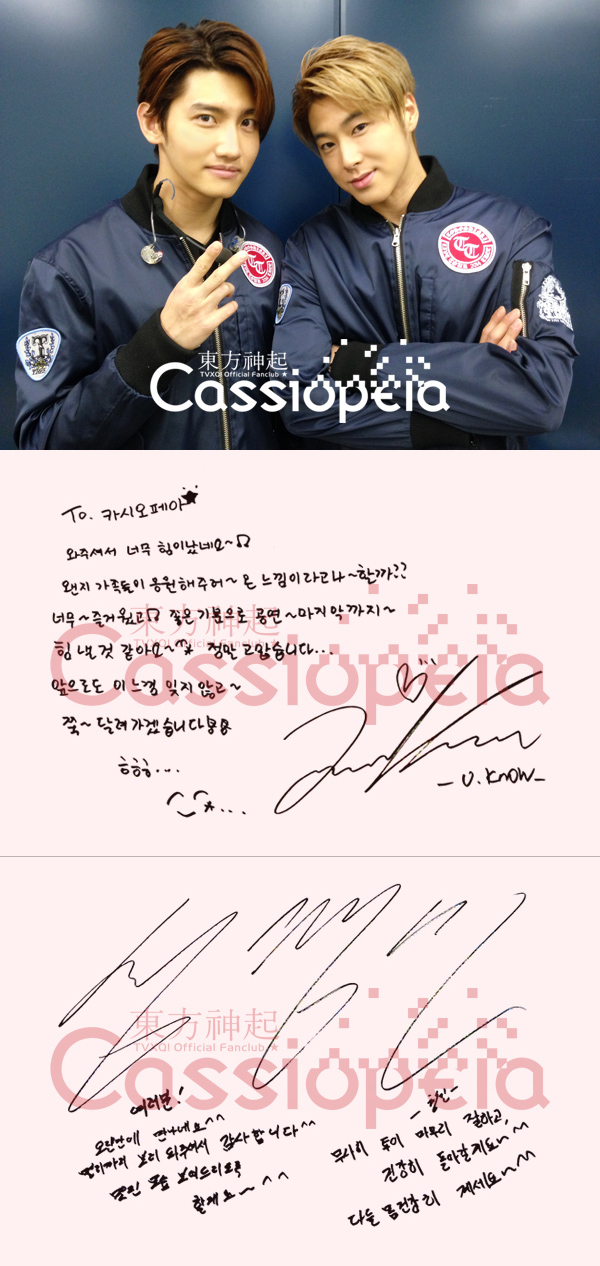 東方神起
TVXQ! Official Fanclub ★
Cassiopeia
To. 카시오페아★
와주셔서 너무 힘이났네요~♫
왠지 가족들이 응원해주러~온 느낌이라고나~할까??
너무~즐거웠고♫ 좋은기분으로 공연~마지막까지~
힘낼것 같아요~^^* 정말 고맙습니다...
앞으로도 이느낌 잊지않고~
쭉~달려가겠습니다
흐흐흐...
^_^*...
- U.KNOW -
東方神起
TVXQ! Official Fanclub ★
Cassiopeia
東方神起
TVXQ! Official Fanclub ★
Cassiopeia
여러분!
오랜만에 만나네요^^
멀리까지 보러 와주어서 감사합니다^^
멋진 모습 보여드리도록
할게요~ ^^
-창민-
무사히 투어 마무리 잘하고,
건강히 돌아갈게요~^^
다들 몸건강히 계세요~^^